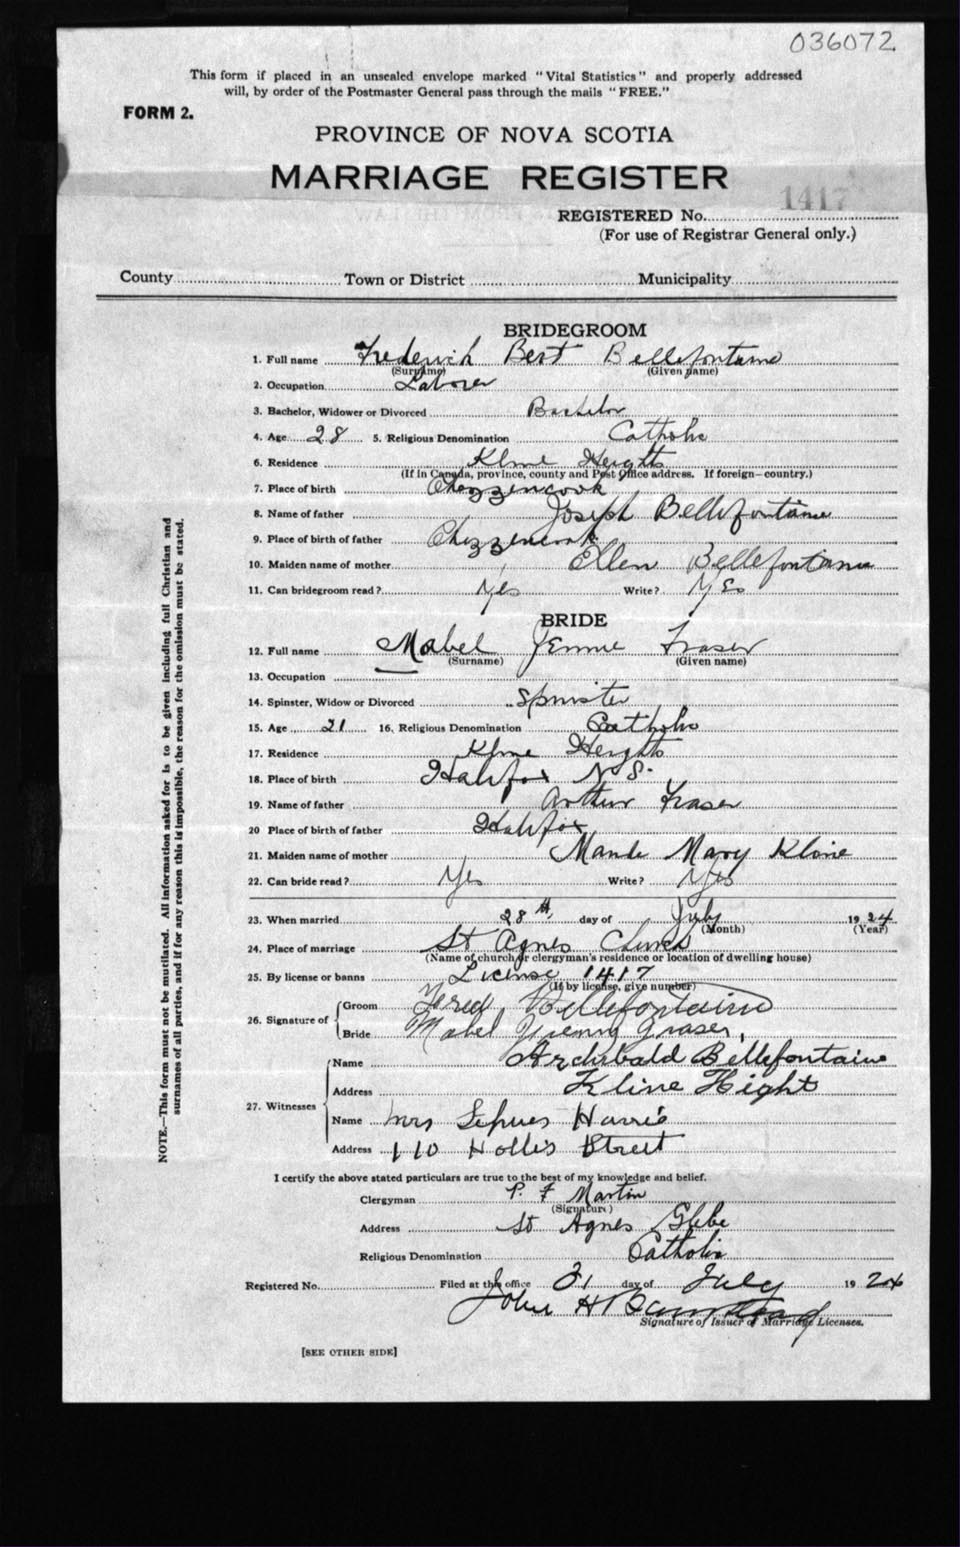 036072
This form if placed in an unsealed envelope marked "Vital Statistics" and properly addressed
will, by order of the Postmaster General pass through the mails "FREE."
FORM 2.
PROVINCE OF NOVA SCOTIA
MARRIAGE REGISTER
1417
REGISTERED No.
(For use of Registrar General only.)
County Town or District Municipality
BRIDEGROOM
1. Full name Frederick Bert Bellefontaine
(Surname) (Given name)
2. Occupation Laborer
3. Bachelor, Widower or Divorced Bachelor
4. Age 28 5. Religious Denomination Catholic
6. Residence Kline Heights
(If in Canada, province, county and Post Office address. If foreign—country.)
7. Place of birth Chezzencook
8. Name of father Joseph Bellefontaine
9. Place of birth of father Chezzencook
10. Maiden name of mother Ellen Bellefontaine
11. Can bridegroom read? Yes Write? Yes
BRIDE
12. Full name Mabel Jennie Fraser
(Surname) (Given name)
13. Occupation
14. Spinster, Widow or Divorced Spinster
15. Age 21 16. Religious Denomination Catholic
17. Residence Kline Heights
18. Place of birth Halifax N.S.
19. Name of father Arthur Fraser
20 Place of birth of father Halifax
21. Maiden name of mother Maude Mary Kline
22. Can bride read? Yes Write? Yes
23. When married 28th day of July 1924
(Month) (Year)
24. Place of marriage St Agnes Church
(Name of church or clergyman's residence or location of dwelling house)
25. By license or banns License 1417
(If by license, give number)
26. Signature of Groom Fred Bellefontaine
Bride Mabel Fraser
27. Witnesses Name Archibald Bellefontaine
Address Kline Hight
Name Mrs Harrie
Address 110 Hollis Street
I certify the above stated particulars are true to the best of my knowledge and belief.
Clergyman P. F Martin
(Signature)
Address St Agnes Glebe
Religious Denomination Catholic
Registered No. Filed at this office 31 day of July 1924
John H
Signature of Issuer of Marriage Licenses.
[SEE OTHER SIDE]
NOTE.—This form must not be mutilated. All information asked for is to be given including full Christian and
surnames of all parties, and if for any reason this is impossible, the reason for the omission must be stated.